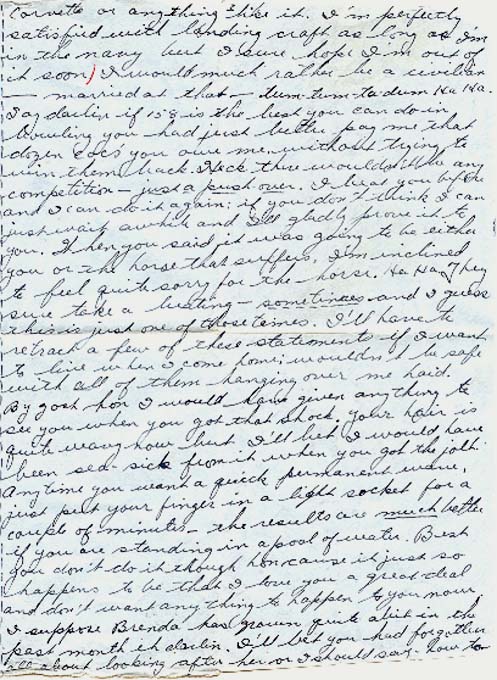 Corvette or anything like it. I'm perfectly
satisfied with landing craft as long as I'm
in the navy but I sure hope I'm out of
it soon) I would much rather be a civilian
— married at that — tum-tum-ta-dum Ha Ha.
Say darlin if 158 is the best you can do in
bowling you had just better pay me that
dozen cocs' you owe me without trying to
win them back. Heck there wouldn't be any
competition — just a push over. I beat you before
and I can do it again; if you don't think I can
just wait awhile and I'll gladly prove it to
you. When you said it was going to be either
you or the horse that suffers, I'm inclined
to feel quite sorry for the horse. Ha Ha. They
sure take a beating — sometimes and I guess
this is just one of those times. I'll have to
retract a few of these statements if I want
to live when I come home; wouldn't be safe
with all of them hanging over me haid.
By gosh hon I would have given anything to
see you when you got that shock, your hair is
quite wavy now but I'll bet I would have
been sea-sick from it when you got the jolt.
Anytime you want a quick permanent wave,
just put your finger in a light socket for a
couple of minutes — the results are much better
if you are standing in a pool of water. Best
you don't do it though hon, cause it just so
happens to be that I love you a great deal
and don't want anything to happen to you now.
I suppose Brenda has grown quite abit in the
past month eh darlin. I'll bet you had forgotten
all about looking after her or I should say how to